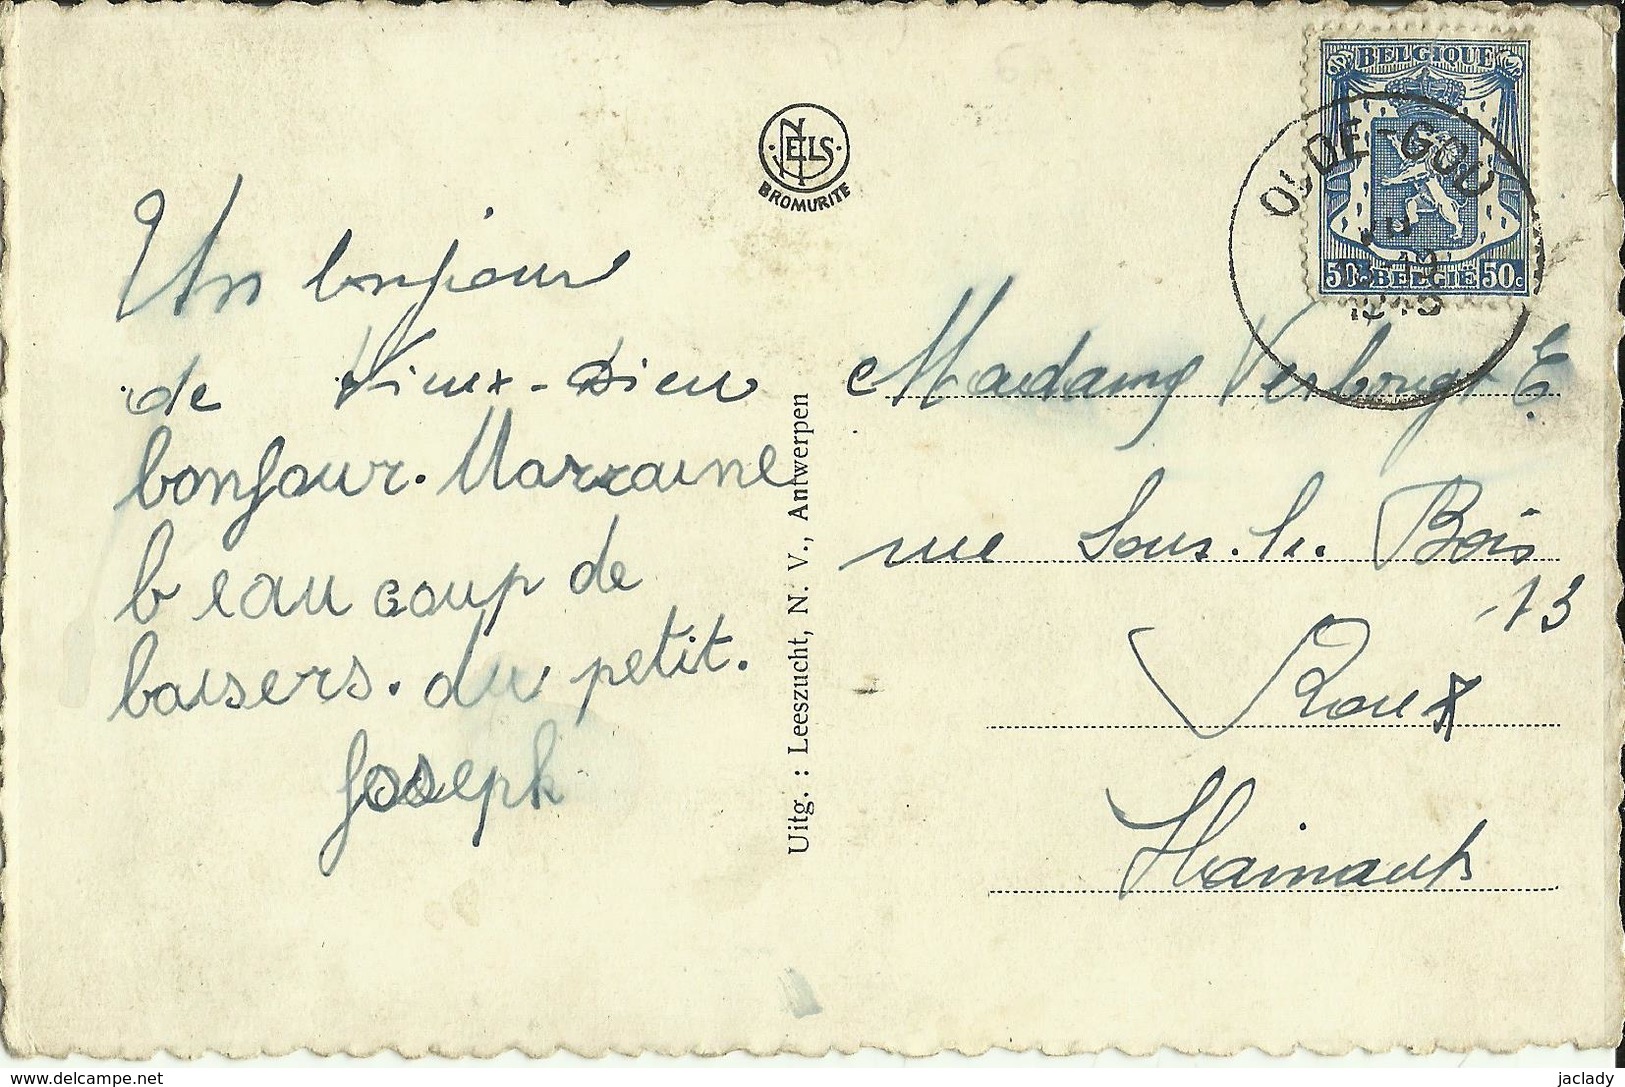 Un bonjour
de Vieux-Dieu
bonjour. Marraine
beaucoup de
baisers. du petit.
Joseph
NELS
BROMURITE
Uitg. : Leeszucht, N. V., Antwerpen
BELGIQUE
50c BELGIE 50c
OUDE-GOD
Madame Verbrugt E
rue Sous-le. Bois
13
Roux
Hainaut
www.delcampe.net
jaclady